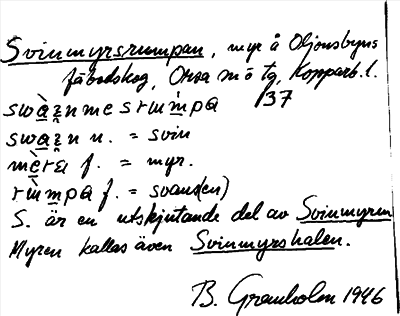 Svinmyrsrumpan, myr å Oljonsbyns
fäbodskog, Orsa sn o tg, Kopparb. l.
37
swàznmesrùmpa
swàzn n. = svin
mèrɑ f. = myr.
rùmpa f. = svans(en)
S. är en utskjutande del av Svinmyren
Myren kallas även Svinmyrshalen.
B. Granholm 1946